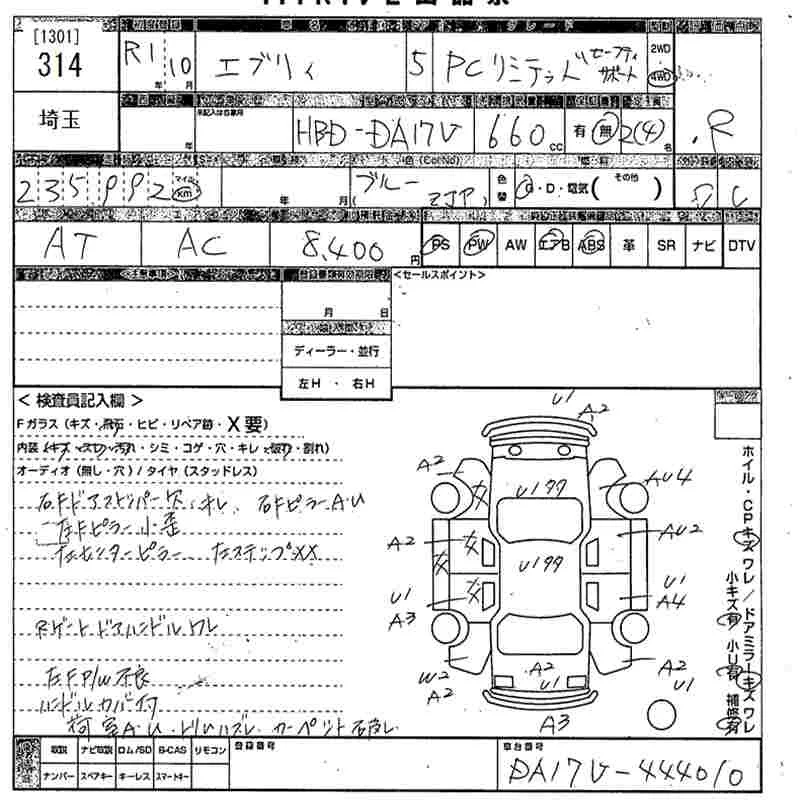 [1301]
314
R1 年 10 月
エブリィ
5
PCリミテッド セーフティサポート
2WD
4WD
埼玉
年
HBD-DA17V
660 cc
有・無
2(4) 名
R
235,992
マイル
km
年 月
ブルー
( ZJP )
色替
G・D・電気( その他 )
AT
AC
8,400 円
PS PW AW エアB ABS 革 SR ナビ DTV
<セールスポイント>
月 日
ディーラー・並行
左H ・ 右H
< 検査員記入欄 >
Fガラス (キズ・飛石・ヒビ・リペア跡・X要)
内装 (キズ・スレ・汚れ・シミ・コゲ・穴・キレ・破れ・割れ)
オーディオ (無し・穴) / タイヤ (スタッドレス)
右Fドアストッパー欠、キレ、右FピラーA・U
左Fピラー小歪
左センターピラー 左ステップXX
Rゲートドアハンドルワレ
左FP/W不良
ハンドルカバー付
荷室A・U・トリムハズレ カーペット破れ
U1
A2
A2
U199
AU4
A2
AU2
U199
U1
A3
U1
A4
W2
A2
A2
U1
A2
U1
A3
ホイル・CPキズワレ/ドアミラーキズワレ
小キズ有 小U有 補修有
取説 ナビ取説 ロム/SD B-CAS リモコン
ナンバー スペアキー キーレス スマートキー
登録番号
車台番号
DA17V-444010